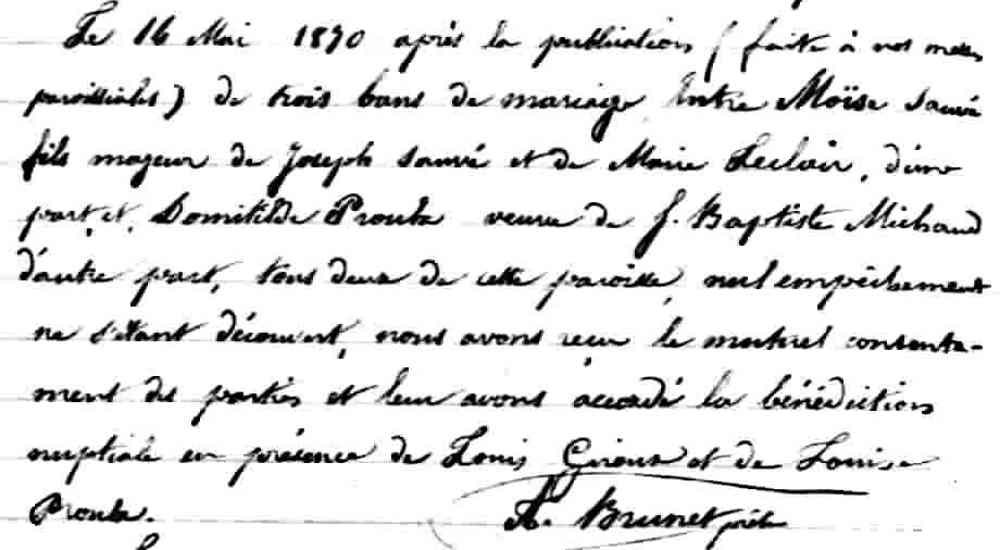 Le 16 Mai 1870 après la publication (faite à nos messes
paroissiales) de trois bans de mariage Entre Moïse Sauvé
fils majeur de Joseph Sauvé et de Marie Leclair, d'une
part, et Domitilde Proulx veuve de J. Baptiste Michaud
d'autre part, tous deux de cette paroisse, nul empêchement
ne s'étant découvert, nous avons reçu le mutuel consente-
ment des parties et leur avons accordé la bénédiction
nuptiale en présence de Louis Giroux et de Louise
Proulx. A. Brunet ptre